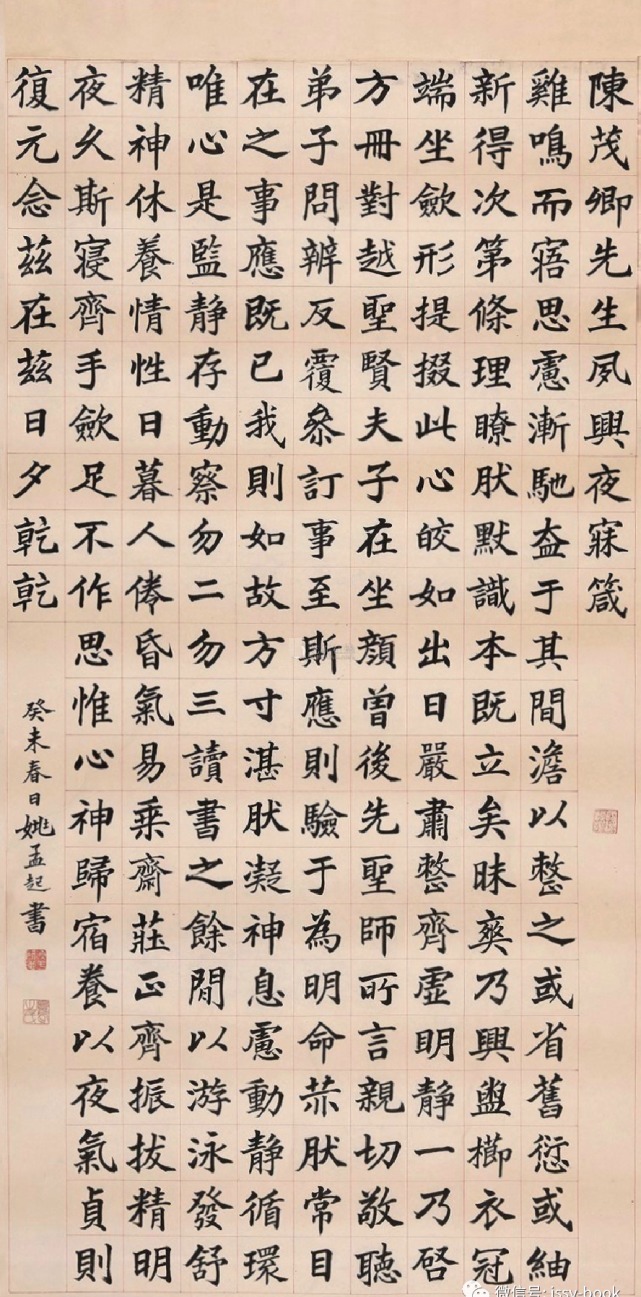 陳茂卿先生夙興夜寐箴
雞鳴而寤思慮漸馳盍于其間澹以整之或省舊愆或紬
新得次第條理瞭肰默識本既立矣昧爽乃興盥櫛衣冠
端坐歛形提掇此心皎如出日嚴肅整齊虛明靜一乃啓
方冊對越聖賢夫子在坐顏曾後先聖師所言親切敬聽
弟子問辨反覆叅訂事至斯應則驗于為明命赤肰常目
在之事應既已我則如故方寸湛肰凝神息慮動靜循環
唯心是監靜存動察勿二勿三讀書之餘閒以游泳發舒
精神休養情性日暮人倦昏氣易乗齋莊正齊振拔精明
夜久斯寝齊手歛足不作思惟心神歸宿養以夜氣貞則
復元念茲在茲日夕乾乾
癸未春日姚孟起書
微信号: jssy-book